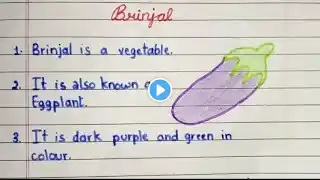 Brinjal
1. Brinjal is a vegetable.
2. It is also known
Eggplant.
3. It is dark purple and green in
colour.